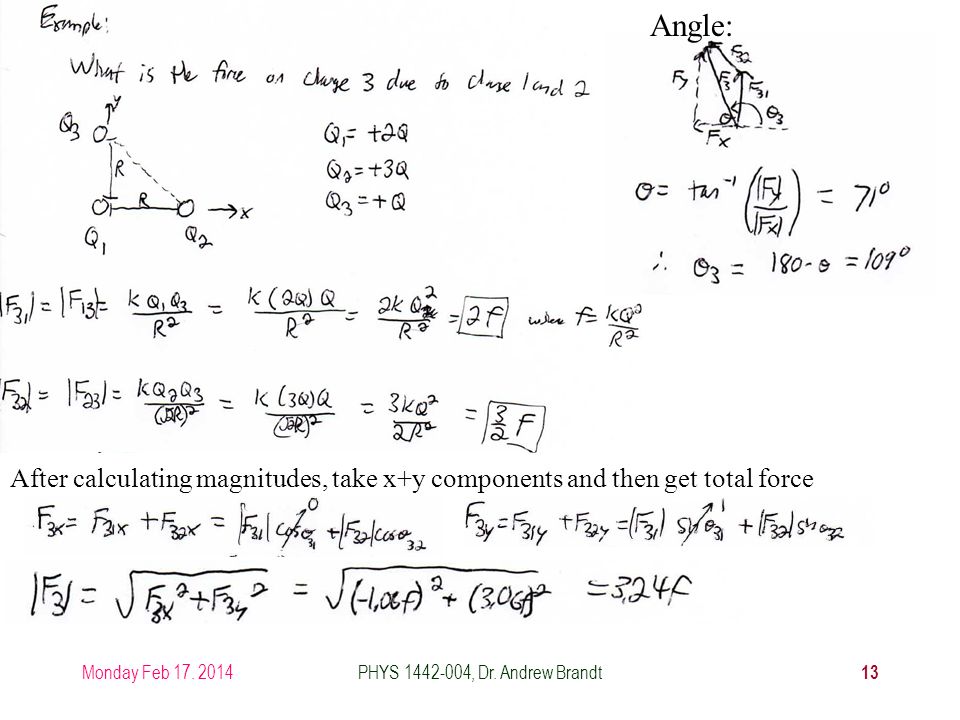 Example:
What is the force on charge 3 due to charge 1 and 2
y
Q₃
R
R
x
Q₁
Q₂
Q₁= +2Q
Q₂= +3Q
Q₃= +Q
Angle:
F₃₂
Fy
F₃
F₃₁
θ
θ₃
Fx
θ= tan⁻¹ (|Fy|/|Fx|) = 71°
∴ θ₃ = 180-θ = 109°
|F₃₁| = |F₁₃| = kQ₁Q₃/R² = k(2Q)Q/R² = 2kQ²/R² = 2f when f= kQ²/R²
|F₃₂| = |F₂₃| = kQ₂Q₃/(√2R)² = k(3Q)Q/(√2R)² = 3kQ²/2R² = 3/2 f
After calculating magnitudes, take x+y components and then get total force
F₃ₓ= F₃₁ₓ + F₃₂ₓ = |F₃₁| cosθ₃₁ 0 + |F₃₂| cosθ₃₂
F₃y= F₃₁y + F₃₂y = |F₃₁| sinθ₃₁ 1 + |F₃₂| sinθ₃₂
|F₃| = √(F₃ₓ² + F₃y²) = √((-1,06f)² + (3,06f)²) = 3,24f
Monday Feb 17. 2014
PHYS 1442-004, Dr. Andrew Brandt
13